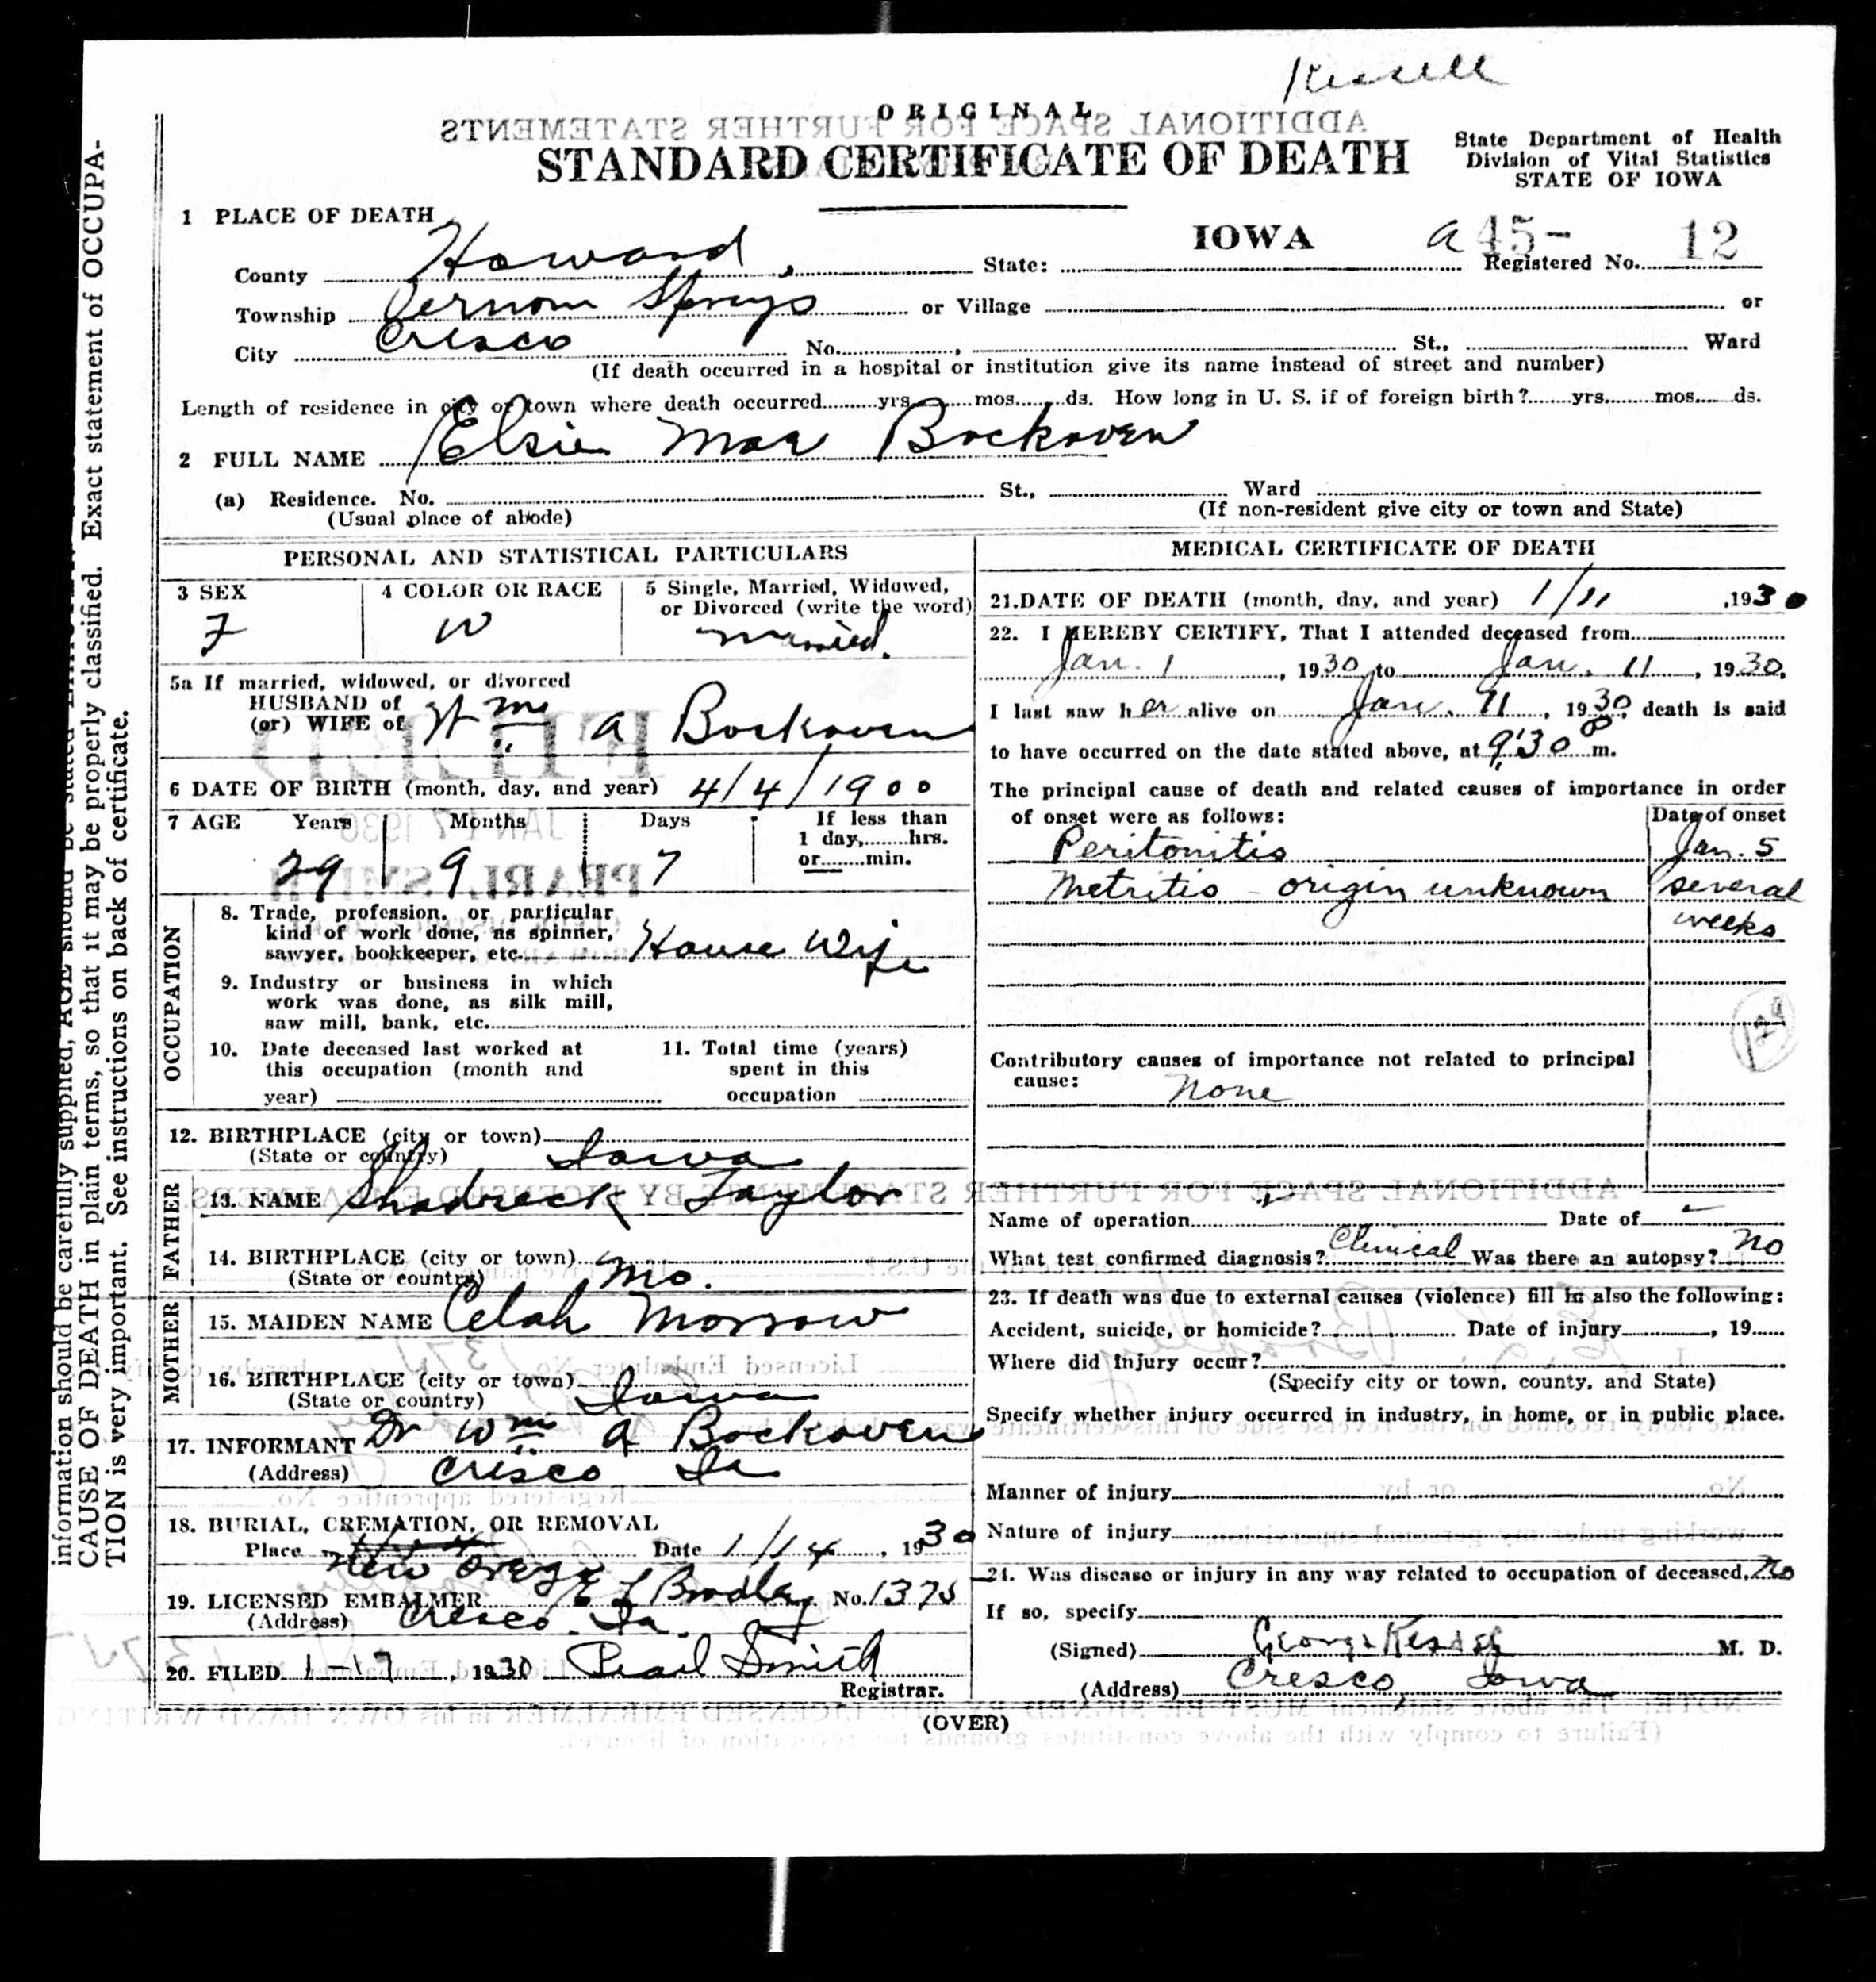 ORIGINAL
STANDARD CERTIFICATE OF DEATH
State Department of Health
Division of Vital Statistics
STATE OF IOWA
1 PLACE OF DEATH
IOWA a 45- 12
County Howard State: Registered No.
Township Vernon Springs or Village or
City Cresco No. , St., Ward
(If death occurred in a hospital or institution give its name instead of street and number)
Length of residence in city or town where death occurred yrs. mos. ds. How long in U. S. if of foreign birth? yrs. mos. ds.
2 FULL NAME Elsie Mae Bockoven
(a) Residence. No. St., Ward
(Usual place of abode) (If non-resident give city or town and State)
PERSONAL AND STATISTICAL PARTICULARS
3 SEX F
4 COLOR OR RACE W
5 Single, Married, Widowed,
or Divorced (write the word)
Married.
5a If married, widowed, or divorced
HUSBAND of
(or) WIFE of Wm A Bockoven
6 DATE OF BIRTH (month, day, and year) 4/4/1900
7 AGE Years Months Days If less than
1 day, hrs.
or min.
29 9 7
OCCUPATION
8. Trade, profession, or particular
kind of work done, as spinner,
sawyer, bookkeeper, etc. House Wife
9. Industry or business in which
work was done, as silk mill,
saw mill, bank, etc.
10. Date deceased last worked at
this occupation (month and
year)
11. Total time (years)
spent in this
occupation
12. BIRTHPLACE (city or town)
(State or country) Iowa
FATHER
13. NAME Shadreck Taylor
14. BIRTHPLACE (city or town)
(State or country) Mo.
MOTHER
15. MAIDEN NAME Celah Morrow
16. BIRTHPLACE (city or town)
(State or country) Iowa
17. INFORMANT Dr Wm A Bockoven
(Address) Cresco Ia
18. BURIAL, CREMATION, OR REMOVAL
Place New Oreg Date 1/14, 1930
19. LICENSED EMBALMER E L Bradley No. 1375
(Address) Cresco. Ia.
20. FILED 1 17, 1930 Pearl Smith
Registrar.
MEDICAL CERTIFICATE OF DEATH
21. DATE OF DEATH (month, day, and year) 1/11, 1930
22. I HEREBY CERTIFY, That I attended deceased from
Jan. 1, 1930 to Jan. 11, 1930,
I last saw her alive on Jan. 11, 1930, death is said
to have occurred on the date stated above, at 9:30 P m.
The principal cause of death and related causes of importance in order
of onset were as follows: Date of onset
Peritonitis Jan. 5
Metritis - origin unknown several
weeks
129
Contributory causes of importance not related to principal
cause: None
Name of operation Date of
What test confirmed diagnosis? Clinical Was there an autopsy? No
23. If death was due to external causes (violence) fill in also the following:
Accident, suicide, or homicide? Date of injury , 19
Where did injury occur?
(Specify city or town, county, and State)
Specify whether injury occurred in industry, in home, or in public place.
Manner of injury
Nature of injury
24. Was disease or injury in any way related to occupation of deceased, No
If so, specify
(Signed) George Kessel M. D.
(Address) Cresco, Iowa
(OVER)
information should be carefully supplied, AGE should be stated
CAUSE OF DEATH in plain terms, so that it may be properly classified. Exact statement of OCCUPA-
TION is very important. See instructions on back of certificate.